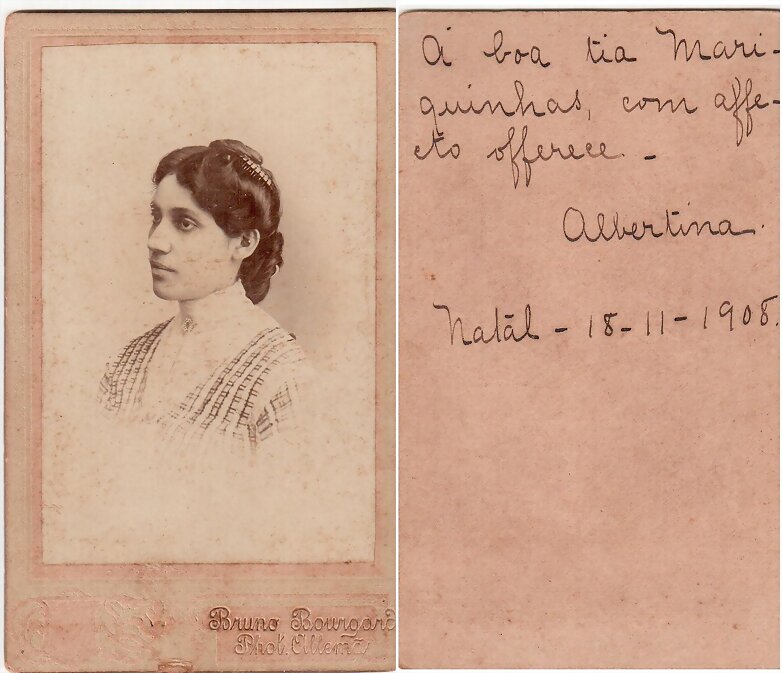 Bruno Bourgard
Phot. Allemã
Á boa tia Mari-
quinhas, com affe-
cto offerece -
Albertina.
Natál - 18-11-1908.